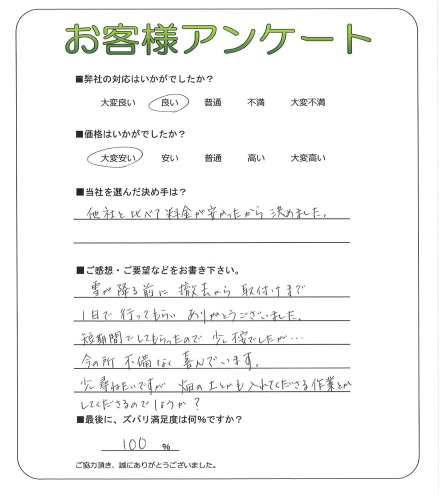 お客様アンケート
■弊社の対応はいかがでしたか？
大変良い 良い 普通 不満 大変不満
■価格はいかがでしたか？
大変安い 安い 普通 高い 大変高い
■当社を選んだ決め手は？
他社と比べて料金が安かったから決めました。
■ご感想・ご要望などをお書き下さい。
雪が降る前に撤去から取付けまで
1日で行ってもらいありがとうございました。
短期間でしてもらったので少し心配でしたが…
今の所不備なく喜んでいます。
少し尋ねたいですが畑の土とかも入れてくださる作業とか
してくださるのでしょうか?
■最後に、ズバリ満足度は何%ですか？
100 %
ご協力頂き、誠にありがとうございました。